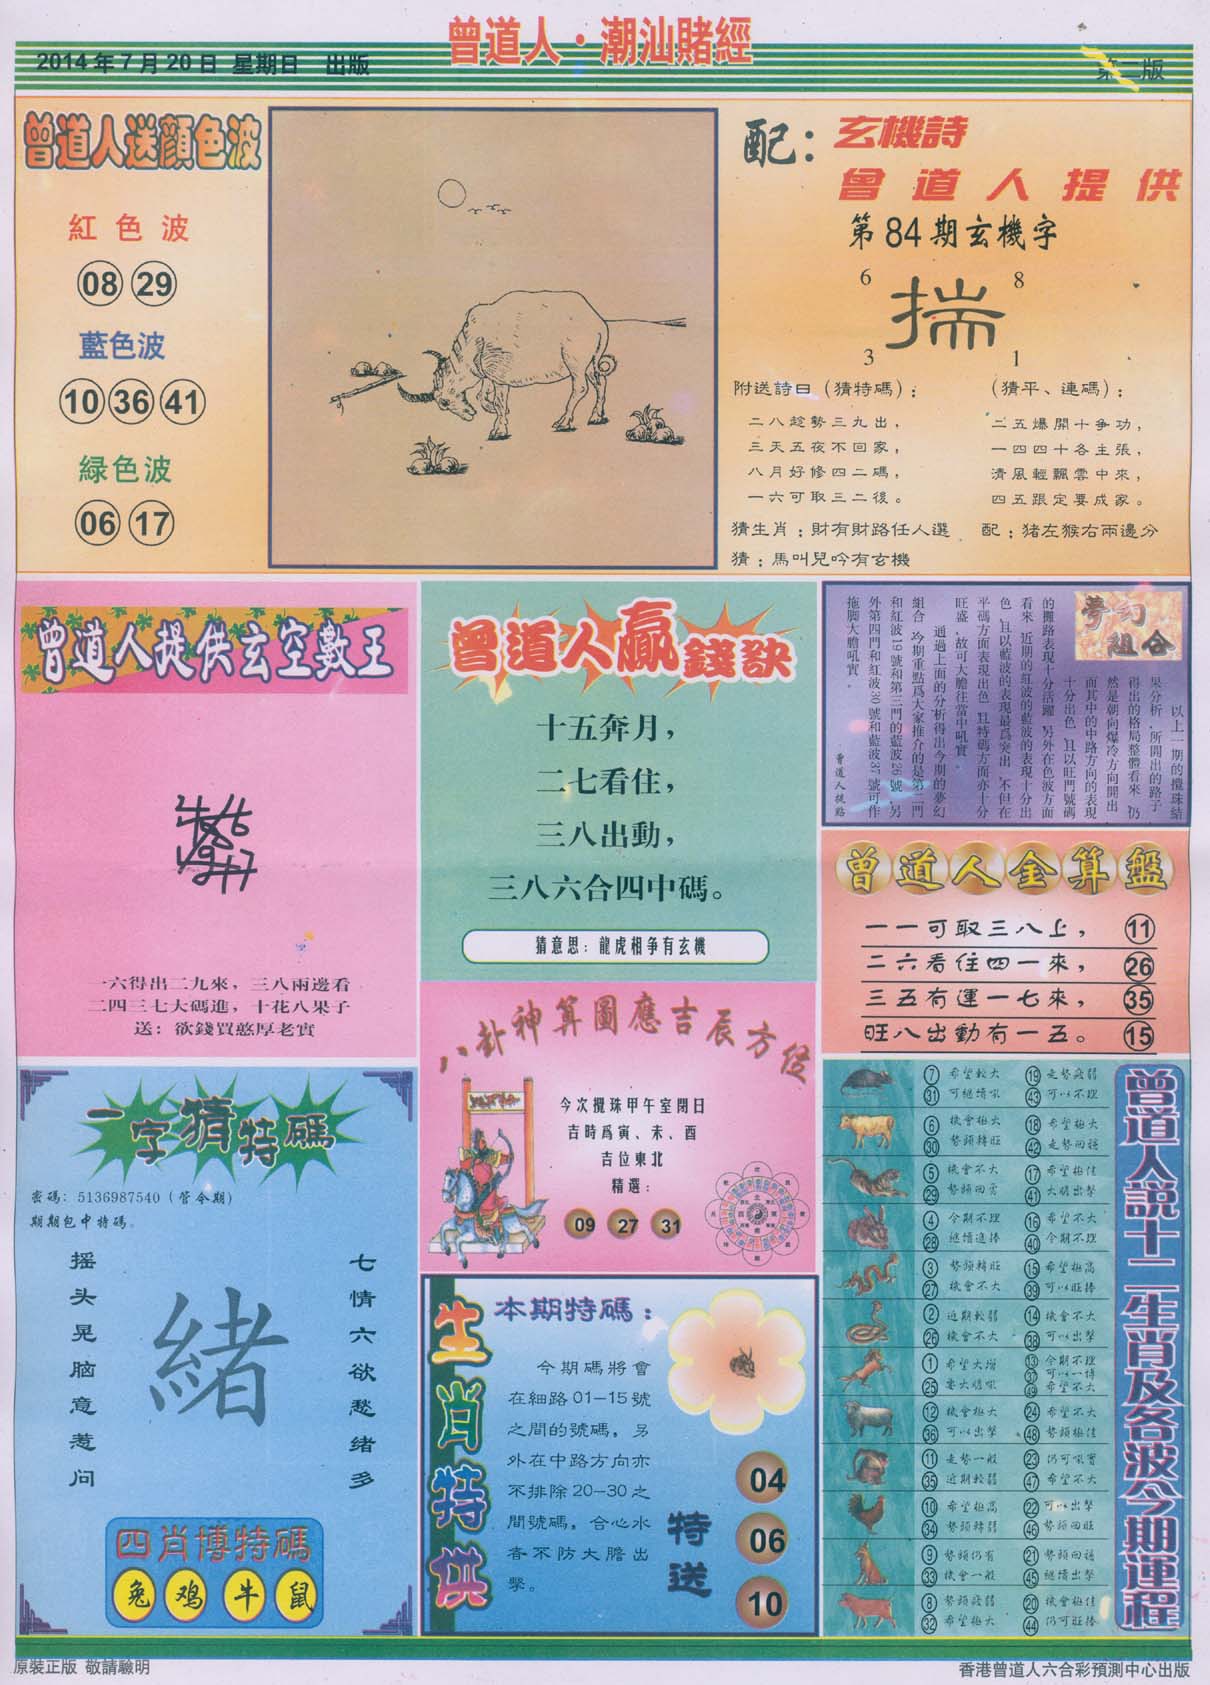 曾道人·潮汕賭經
2014年7月20日 星期日 出版
第二版
曾道人送顔色波
紅色波
08 29
藍色波
10 36 41
緑色波
06 17
配：玄機詩
曾道人提供
第84期玄機字
6 8
揣
3 1
附送詩曰（猜特碼）：
二八趁勢三九出，
三天五夜不回家，
八月好修四二碼，
一六可取三二後。
（猜平、連碼）：
二五爆開十爭功，
一四四十各主張，
清風輕飄雲中來，
四五跟定要成家。
猜生肖；財有財路任人選 配；猪左猴右兩邊分
猜；馬叫兒吟有玄機
曾道人提供玄空數王
一六得出二九來，三八兩邊看
二四三七大碼進，十花八果子
送：欲錢買憨厚老實
曾道人贏錢訣
十五奔月，
二七看住，
三八出動，
三八六合四中碼。
猜意思：龍虎相争有玄機
夢幻組合
以上一期的攪珠結
果分析，所開出的路子
得出的格局整體看來，仍
然是朝向爆冷方向開出
而其中的中路方向的表現
十分出色，且以旺門號碼
的攤路表現十分活躍，另外在色波方面
看來，近期的紅波的藍波的表現十分出
色，且以藍波的表現最爲突出，不但在
平碼方面表現出色，且特碼方面亦十分
旺盛，故可大膽往當中吼實。
通過上面的分析得出今期的夢幻
組合，今期重點爲大家推介的是第二門
和紅波19號和第三門的藍波26號，另
外第四門和紅波30號和藍波37號可作
拖脚大膽吼實。
曾道人提點
曾道人金算盤
一一可取三八上， 11
二六看住四一來， 26
三五有運一七來， 35
旺八出動有一五。 15
八卦神算圖應吉辰方位
今次攪珠甲午室閉日
吉時爲寅、未、酉
吉位東北
精選：
09 27 31
一字猜特碼
密碼：5136987540（管令期）
期期包中特碼。
摇头晃脑意惹问
緒
七情六欲愁绪多
四肖博特碼
兔 鸡 牛 鼠
生肖特供
本期特碼：
今期碼將會
在細路01-15號
之間的號碼，另
外在中路方向亦
不排除20-30之
間號碼，合心水
者不防大膽出
擊。
特送
04
06
10
曾道人説十二生肖及各波今期運程
7 希望較大 19 走勢疲弱
31 可繼續吼 43 可以不理
6 機會極大 18 希望極大
30 勢頭轉旺 42 走勢回穩
5 機會不大 17 希望極佳
29 勢頭回勇 41 大膽出擊
4 今期不理 16 希望不大
28 繼續進捧 40 今期不理
3 勢頭轉旺 15 希望極高
27 機會不大 39 可以旺捧
2 近期較弱 14 機會不大
26 機會不大 38 可以出擊
1 希望大增 13 今期不理
37 可以一博
25 要大膽吼 49 希望不大
12 機會極大 24 希望不大
36 可以出擊 48 勢頭極佳
11 走勢一般 23 仍可吼實
35 近期較弱 47 希望不大
10 希望極高 22 可以出擊
34 勢頭轉弱 46 勢頭回旺
9 勢頭仍有 21 勢頭回穩
33 機會一般 45 繼續出擊
8 勢頭疲弱 20 機會極佳
32 希望極大 44 仍可旺捧
原裝正版 敬請驗明
香港曾道人六合彩預測中心出版